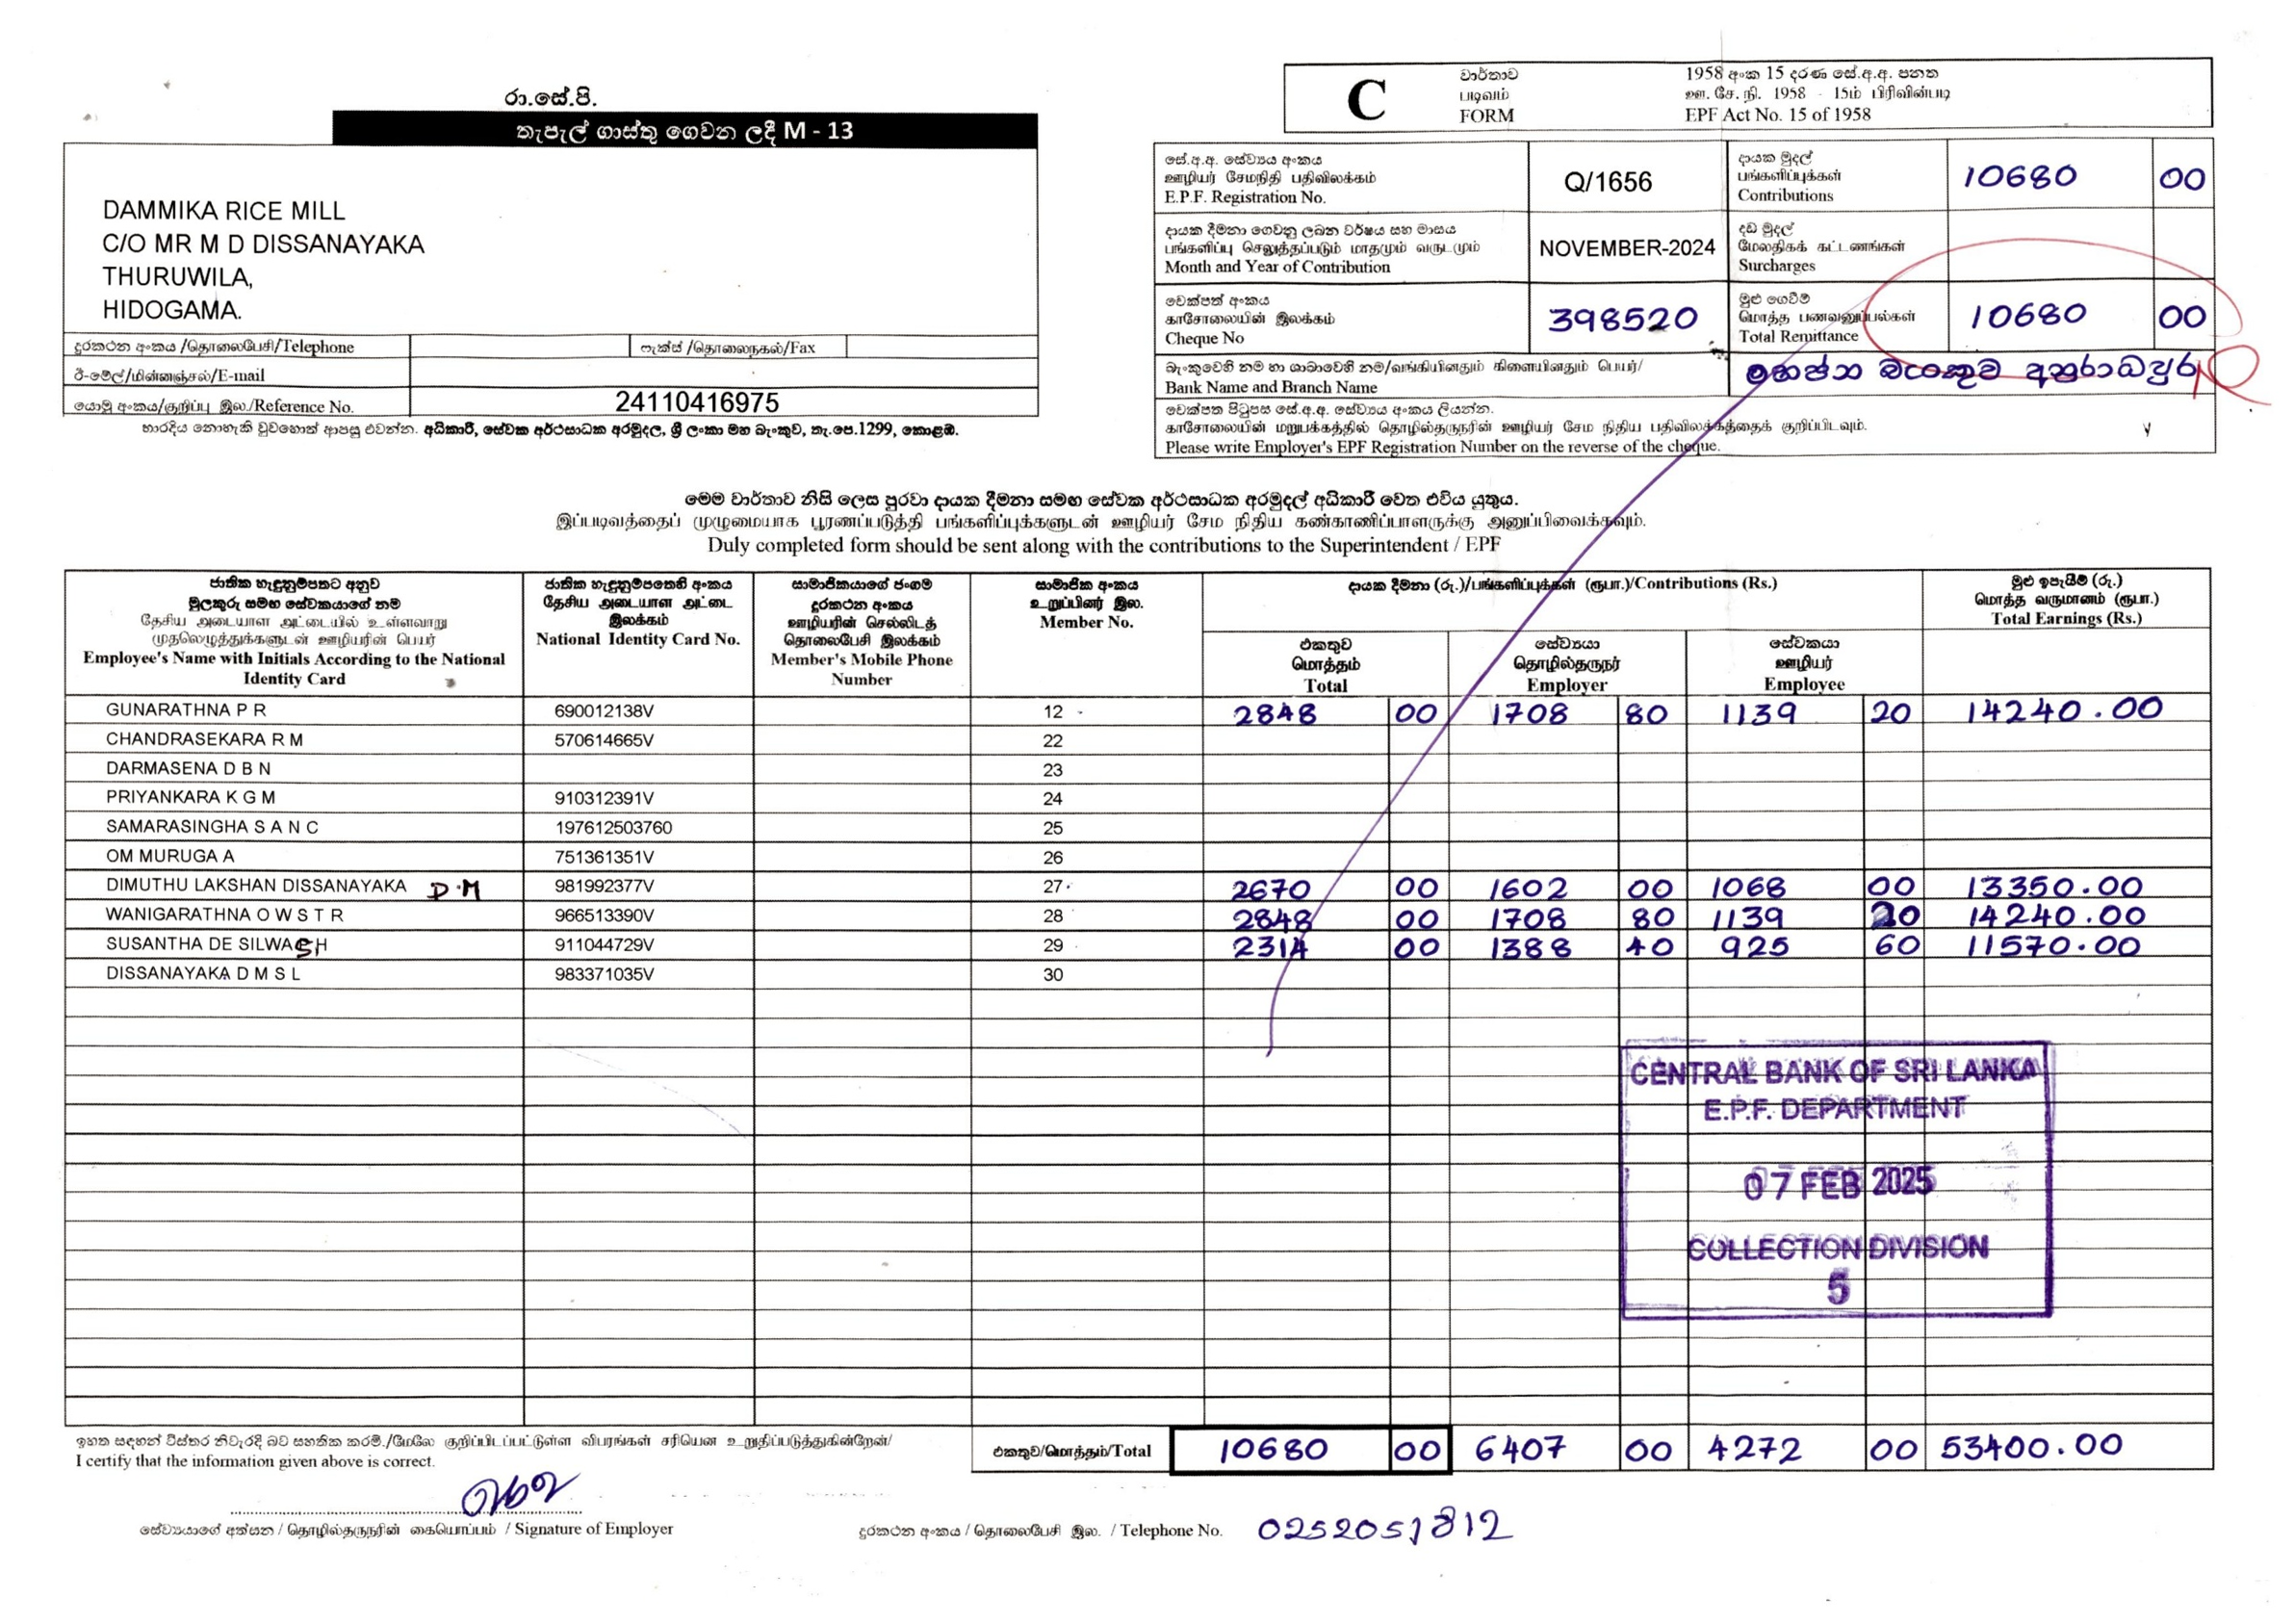 රා.සේ.පි.
තැපැල් ගාස්තු ගෙවන ලදී M - 13
DAMMIKA RICE MILL
C/O MR M D DISSANAYAKA
THURUWILA,
HIDOGAMA.
දුරකථන අංකය /தொலைபேசி/Telephone
ෆැක්ස් /தொலைநகல்/Fax
ඊ-මේල්/மின்னஞ்சல்/E-mail
යොමු අංකය/குறிப்பு இல./Reference No. 24110416975
භාරදිය නොහැකි වුවහොත් ආපසු එවන්න. අධිකාරී, සේවක අර්ථසාධක අරමුදල, ශ්‍රී ලංකා මහ බැංකුව, තැ.පෙ.1299, කොළඹ.
C
වාර්තාව
படிவம்
FORM
1958 අංක 15 දරණ සේ.අ.අ. පනත
ஊ. சே. நி. 1958 - 15ம் பிரிவின்படி
EPF Act No. 15 of 1958
සේ.අ.අ. සේව්‍යය අංකය
ஊழியர் சேமநிதி பதிவிலக்கம்
E.P.F. Registration No.
Q/1656
දායක මුදල්
பங்களிப்புக்கள்
Contributions
10680 00
දායක දීමනා ගෙවනු ලබන වර්ෂය සහ මාසය
பங்களிப்பு செலுத்தப்படும் மாதமும் வருடமும்
Month and Year of Contribution
NOVEMBER-2024
දඩ මුදල්
மேலதிகக் கட்டணங்கள்
Surcharges
චෙක්පත් අංකය
காசோலையின் இலக்கம்
Cheque No
398520
මුළු ගෙවීම්
மொத்த பணவனுப்பல்கள்
Total Remittance
10680 00
බැංකුවෙහි නම හා ශාඛාවෙහි නම/வங்கியினதும் கிளையினதும் பெயர்/
Bank Name and Branch Name
බැංකුව අනුරාධපුර
චෙක්පත පිටුපස සේ.අ.අ. සේව්‍යය අංකය ලියන්න.
காசோலையின் மறுபக்கத்தில் தொழில்தருநரின் ஊழியர் சேம நிதிய பதிவிலக்கத்தைக் குறிப்பிடவும்.
Please write Employer's EPF Registration Number on the reverse of the cheque.
මෙම වාර්තාව නිසි ලෙස පුරවා දායක දීමනා සමඟ සේවක අර්ථසාධක අරමුදල් අධිකාරී වෙත එවිය යුතුය.
இப்படிவத்தைப் முழுமையாக பூரணப்படுத்தி பங்களிப்புக்களுடன் ஊழியர் சேம நிதிய கண்காணிப்பாளருக்கு அனுப்பிவைக்கவும்.
Duly completed form should be sent along with the contributions to the Superintendent / EPF
ජාතික හැඳුනුම්පතට අනුව
මුලකුරු සමඟ සේවකයාගේ නම
தேசிய அடையாள அட்டையில் உள்ளவாறு
முதலெழுத்துக்களுடன் ஊழியரின் பெயர்
Employee's Name with Initials According to the National
Identity Card
ජාතික හැඳුනුම්පතෙහි අංකය
தேசிய அடையாள அட்டை
இலக்கம்
National Identity Card No.
සාමාජිකයාගේ ජංගම
දුරකථන අංකය
ஊழியரின் செல்லிடத்
தொலைபேசி இலக்கம்
Member's Mobile Phone
Number
සාමාජික අංකය
உறுப்பினர் இல.
Member No.
දායක දීමනා (රු.)/பங்களிப்புக்கள் (ரூபா.)/Contributions (Rs.)
එකතුව
மொத்தம்
Total
සේව්‍යයා
தொழில்தருநர்
Employer
සේවකයා
ஊழியர்
Employee
මුළු ඉපැයීම් (රු.)
மொத்த வருமானம் (ரூபா.)
Total Earnings (Rs.)
GUNARATHNA P R 690012138V 12 2848 00 1708 80 1139 20 14240.00
CHANDRASEKARA R M 570614665V 22
DARMASENA D B N 23
PRIYANKARA K G M 910312391V 24
SAMARASINGHA S A N C 197612503760 25
OM MURUGA A 751361351V 26
DIMUTHU LAKSHAN DISSANAYAKA D.M 981992377V 27 2670 00 1602 00 1068 00 13350.00
WANIGARATHNA O W S T R 966513390V 28 2848 00 1708 80 1139 20 14240.00
SUSANTHA DE SILWA S H 911044729V 29 2314 00 1388 40 925 60 11570.00
DISSANAYAKA D M S L 983371035V 30
CENTRAL BANK OF SRI LANKA
E.P.F. DEPARTMENT
07 FEB 2025
COLLECTION DIVISION
5
ඉහත සඳහන් විස්තර නිවැරදි බව සහතික කරමි./மேலே குறிப்பிடப்பட்டுள்ள விபரங்கள் சரியென உறுதிப்படுத்துகின்றேன்/
I certify that the information given above is correct.
එකතුව/மொத்தம்/Total 10680 00 6407 00 4272 00 53400.00
සේව්‍යයාගේ අත්සන / தொழில்தருநரின் கையொப்பம் / Signature of Employer
දුරකථන අංකය / தொலைபேசி இல. / Telephone No. 0252051812